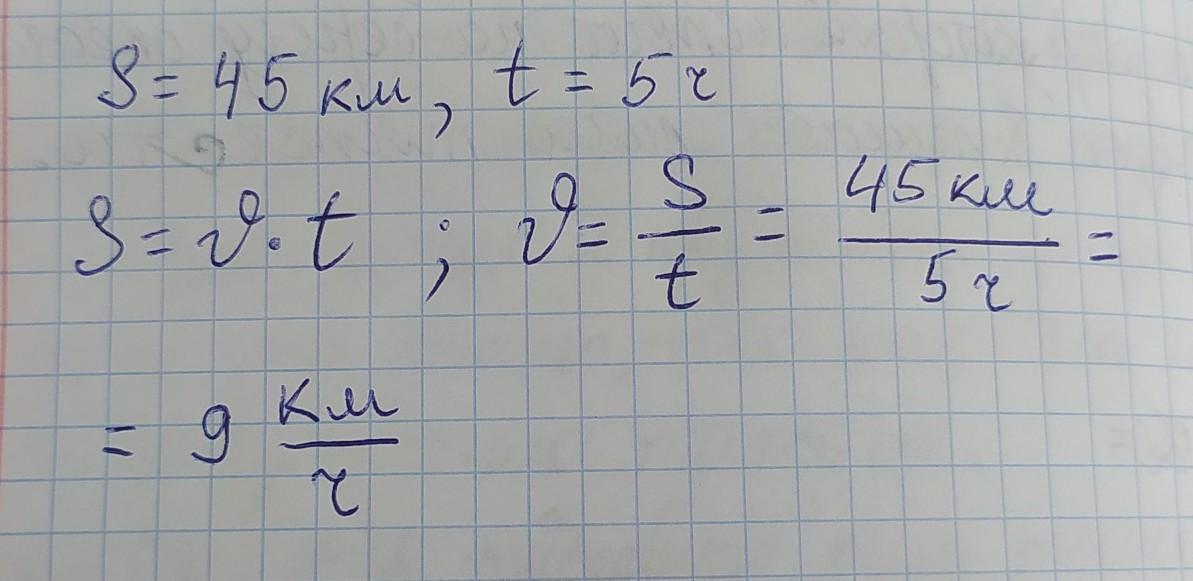 S = 45 км, t = 5 ч
S = v · t ; v = S/t = 45 км/5 ч =
= 9 км/ч